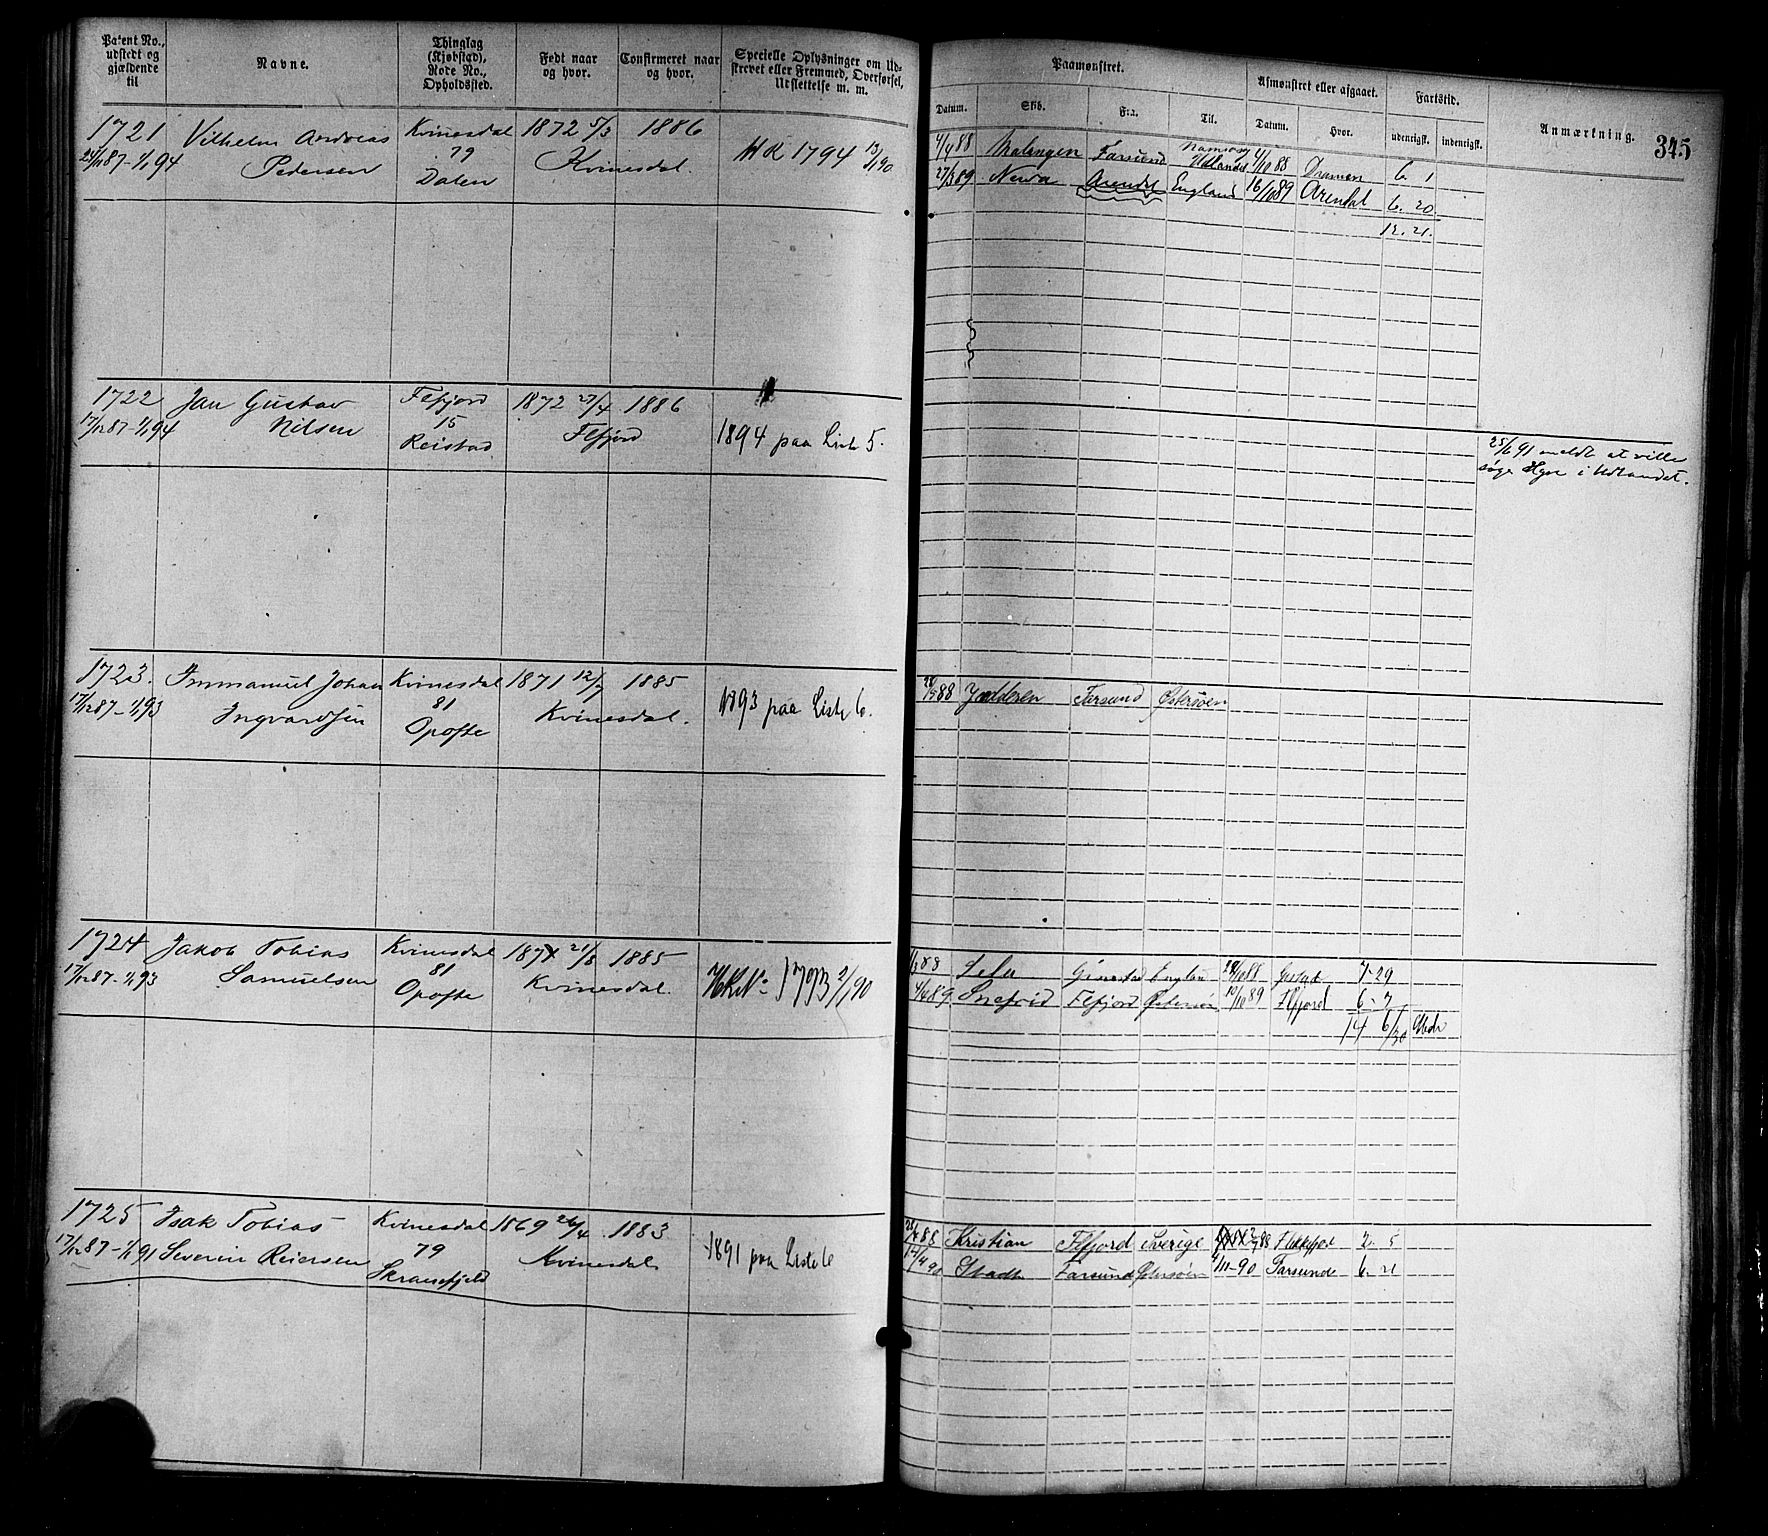 Patent No., udstedt og gjældende til
Navne.
Thinglag (Kjøbstad), Rode No., Opholdssted.
Født naar og hvor.
Confirmeret naar og hvor.
Specielle Oplysninger om Udskrevet eller Fremmed, Overførsel, Udslettelse m. m.
Paamønstret.
Afmønstret eller afgaaet.
Fartstid.
Anmærkning.
345
Datum.
Skib.
Fra.
Til.
Datum.
Hvor.
udenrigsk.
indenrigsk.
1721 Vilhelm Andreas Kvinesdal 1872 5/3 1886
87-1/1 94 Pedersen 79 Kvinesdal. 1794 13/1 90
Dalen
4/4 88 Malangen Farsund Udlandet 4/10 88 Dramen 6 1
27/3 89 Arendal England 16/10 89 Arendal 6. 20
12. 21.
1722 Jan Gustav Flefjord 1872 27/4 1886
17/12 87-1/1 94 Nilsen 15 Flefjord 1894 paa Liste 5.
Reistad
25/6 91 meldt at ville
søge Hyre i Udlandet.
1723. Immanuel Johan Kvinesdal 1871 12/7 1885
17/12 87-1/1 93 Ingvardsen 81 Kvinesdal. 1893 paa Liste 6.
Opofte
88 Jædderen Farsund Østersøen
1724 Jakob Tobias Kvinesdal 187 21/8 1885
17/12 87-1/1 93 Samuelsen 81 Kvinesdal. 1793 2/1 90
Opofte
88 England 88 7-29
4/6 89 Snefrid Flefjord 10/10 89 Flefjord 6-7
14 6/30
1725 Isak Tobias Kvinesdal 1869 26/4 1883
17/12 87-1/1 91 Severin Reiersen 79 Kvinesdal 1891 paa Liste 6
88 Kristian Flefjord Sverige 88 2. 5
90 Farsund Østersøen 90 Farsund 6. 21